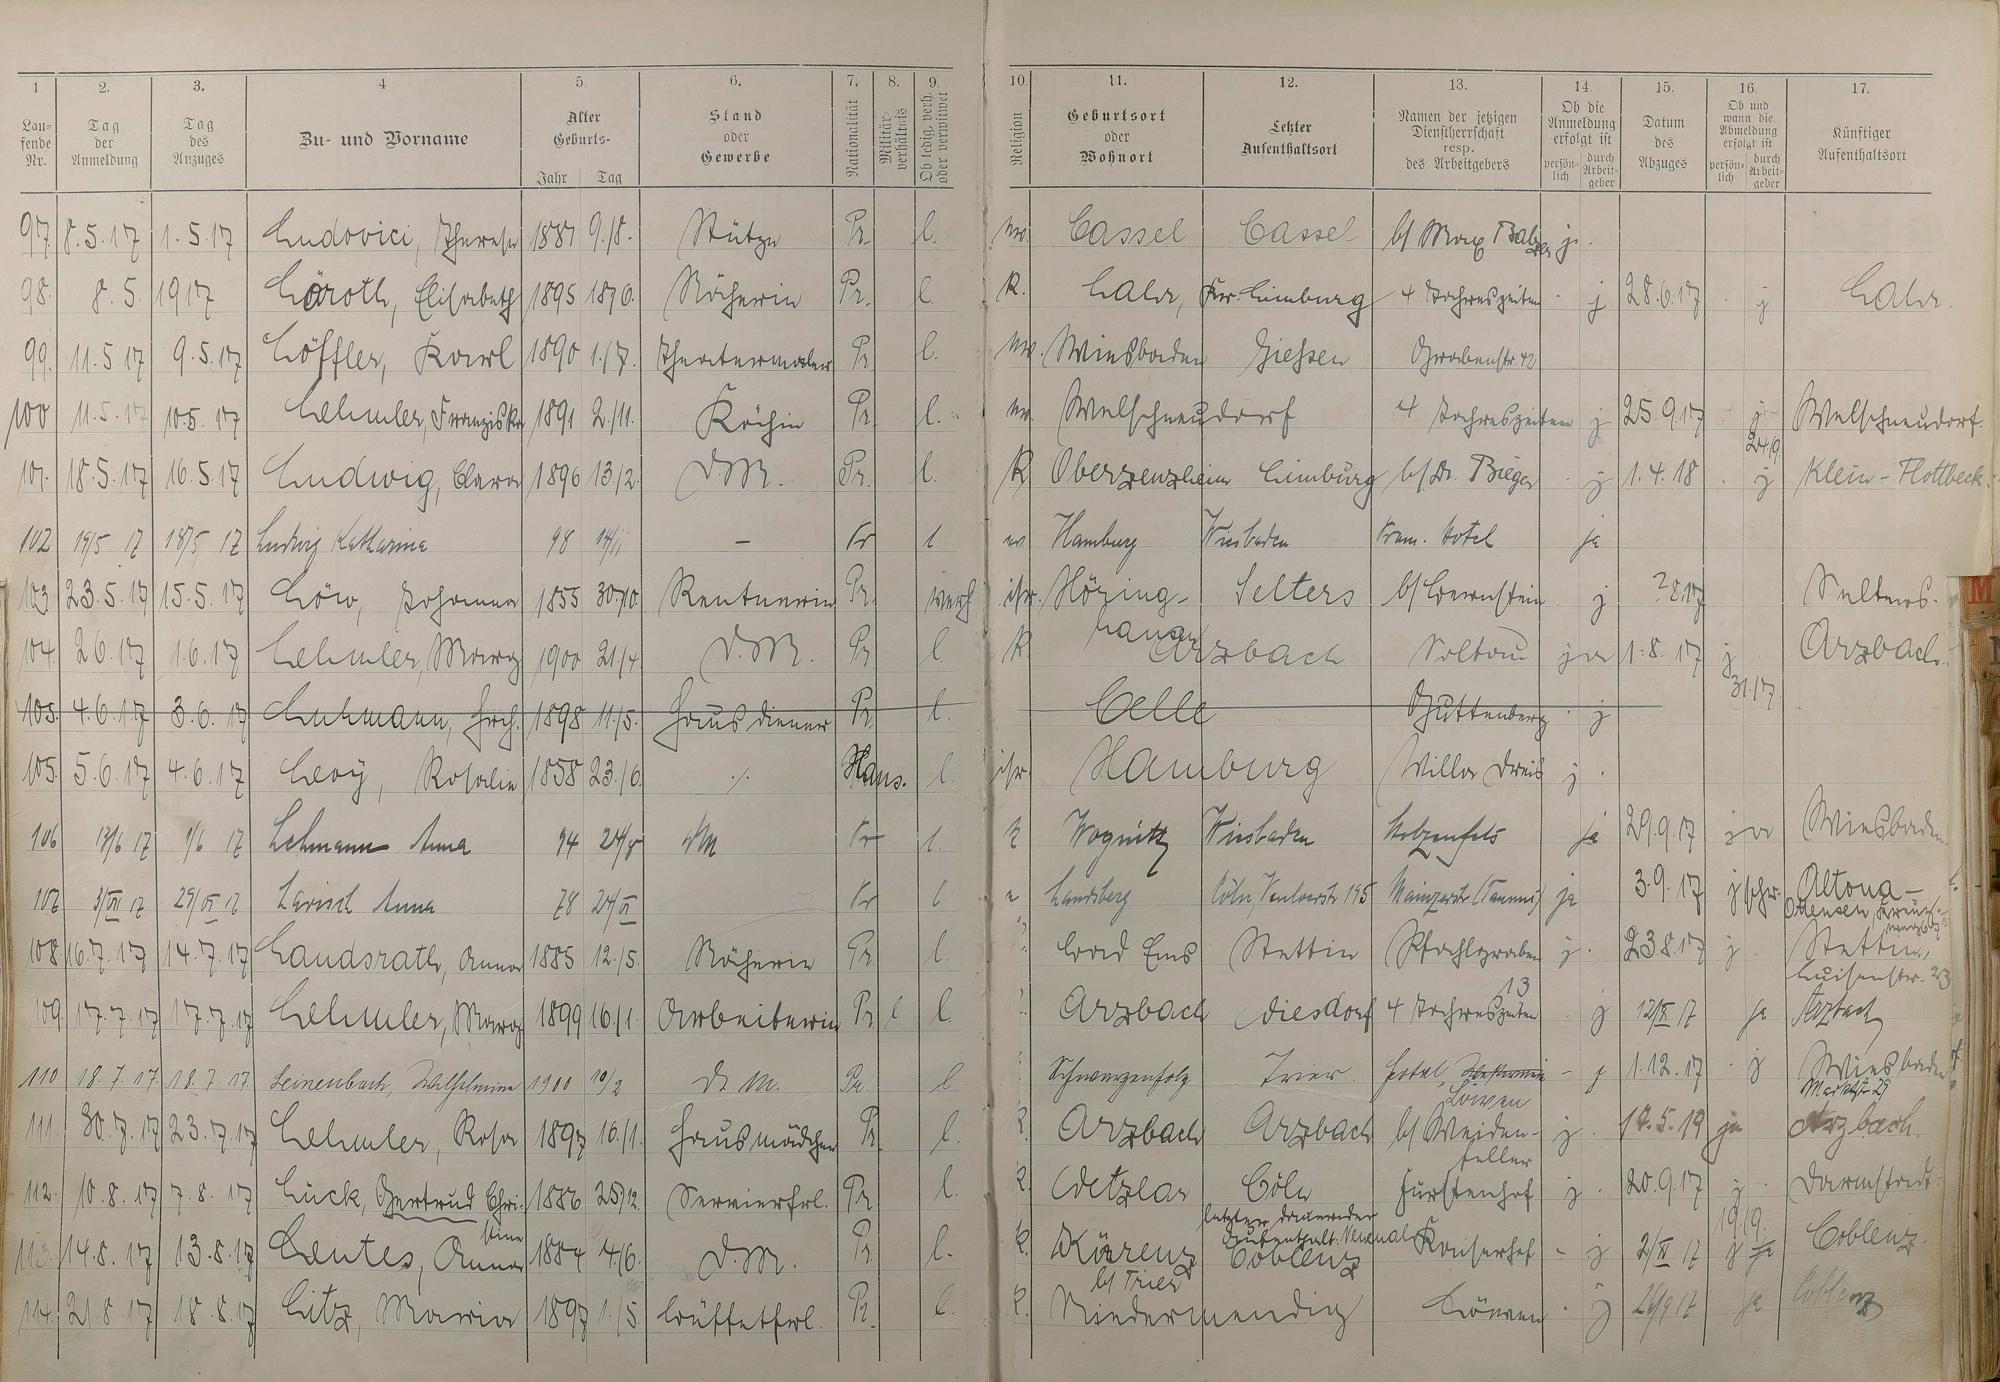 1 2. 3. 4 5. 6. 7. 8. 9. 10. 11. 12. 13. 14. 15. 16. 17.
Lau-
fende
Nr.
Tag
der
Anmeldung
Tag
des
Anzuges
Zu- und Vorname
Alter
Geburts-
Jahr Tag
Stand
oder
Gewerbe
Nationalität
Militär-
verhältnis
Ob ledig, verh.
oder verwitwet
Religion
Geburtsort
oder
Wohnort
Letzter
Aufenthaltsort
Namen der jetzigen
Dienstherrschaft
resp.
des Arbeitgebers
Ob die
Anmeldung
erfolgt ist
persön-
lich
durch
Arbeit-
geber
Datum
des
Abzuges
Ob und
wann die
Abmeldung
erfolgt ist
persön-
lich
durch
Arbeit-
geber
Künftiger
Aufenthaltsort
97 8.5.17 1.5.17 Ludovici, Therese 1887 9./8. Stütze Pr. l. ev. Cassel Cassel b/ Max Balzer j.
98. 8.5. 1917 Löroth, Elisabeth 1895 18/6. Näherin Pr. l. K. Lahr, Kr. Limburg 4 Jahreszeiten j 28.6.17 j Lahr.
99. 11.5.17 9.5.17 Löffler, Karl 1890 1./7. Theatermaler Pr. l. ev. Wiesbaden Giessen Grabenstr. 42
100 11.5.17 10.5.17 Lehmler, Franziska 1891 2./11. Köchin Pr. l. ev. Welschneudorf 4 Jahreszeiten j 25.9.17 j Welschneudorf.
24/9.
101. 18.5.17 16.5.17 Ludwig, Clara 1896 13/2. D.M. Pr. l. K Oberzenzheim Limburg b/ Dr. Bieger j 1.4.18 j Klein-Flottbeck
102 19/5 17 18/5 17 Ludwig Katharina 98 14/11 — Pr l ev Hamburg Wiesbaden Hotel ja
103 23.5.17 15.5.17 Löw, Johanna 1855 30./10. Rentnerin Pr. verh isr. Höring-
hausen
Selters b/ Loewenstein j 28.17 Selters.
104. 2.6.17 1.6.17 Lehmler, Marg 1900 21./4 D.M. Pr l. K Arzbach Soltau ja 1.8.17 j Arzbach.
31.17.
105. 4.6.17 3.6.17 Luhmann, Hrch. 1898 11./5. Hausdiener Pr. l. Celle Guttenberg j
105. 5.6.17 4.6.17 Levy, Rosalie 1858 23./6. ./. Hans. l. isr. Hamburg Villa j.
106 13/6 17 1/6 17 Lehmann Anna 94 24/8 DM Pr l. K Wiesbaden Stolzenfels ja 29.9.17 ja Wiesbaden
107 3/VII 17 29/VI 17 Larisch Anna 78 24/VI Pr l e Landsberg Cöln, Venloerstr. 195 Mainzerstr (Taunus) ja 3.9.17 j schr. Altona-
Ottensen,
108. 16.7.17 14.7.17 Landsrath, Anna 1885 12./5. Näherin Pr. l. Bad Ems Stettin Pfahlgraben
13
j. 23.8.17 j. Stettin,
Luisenstr. 23
109. 17.7.17 17.7.17 Lehmler, Marg 1899 16./1. Arbeiterin Pr l l. Arzbach Diesdorf 4 Jahreszeiten j 12/X 17 ja Arzbach
110 18.7.17 18.7.17. Leinenbach, Wilhelmine 1900 10/2 D. M. Pr. l Trier. Hotel
Löwen
- j 1.12.17 j Wiesbaden
Marktstr 29
111. 30.7.17 23.7.17 Lehmler, Rosa 1897 16./1. Hausmädchen Pr. l. K. Arzbach Arzbach b/ Weiden-
feller
j. 17.5.19 ja Arzbach.
112. 10.8.17 7.8.17 Lück, Gertrud Chri-
stine
1886 25/12. Servierfrl. Pr. l. K. Wetzlar Cöln Fürstenhof j. 20.9.17 j. Darmstadt.
19/9.
letzter dauernder
Aufenthalt:
113. 14.8.17 13.8.17 Lentes, Anna 1884 4./6. D.M. Pr. l. K. Kürenz
b/ Trier
Coblenz Kaiserhof - j 2/XI 17 j ja Coblenz.
114. 21.8.17 18.8.17 Litz, Maria 1897 1./5. Büffetfrl. Pr. l. K. Niedermendig Löwen j 26/9 17 ja Coblenz